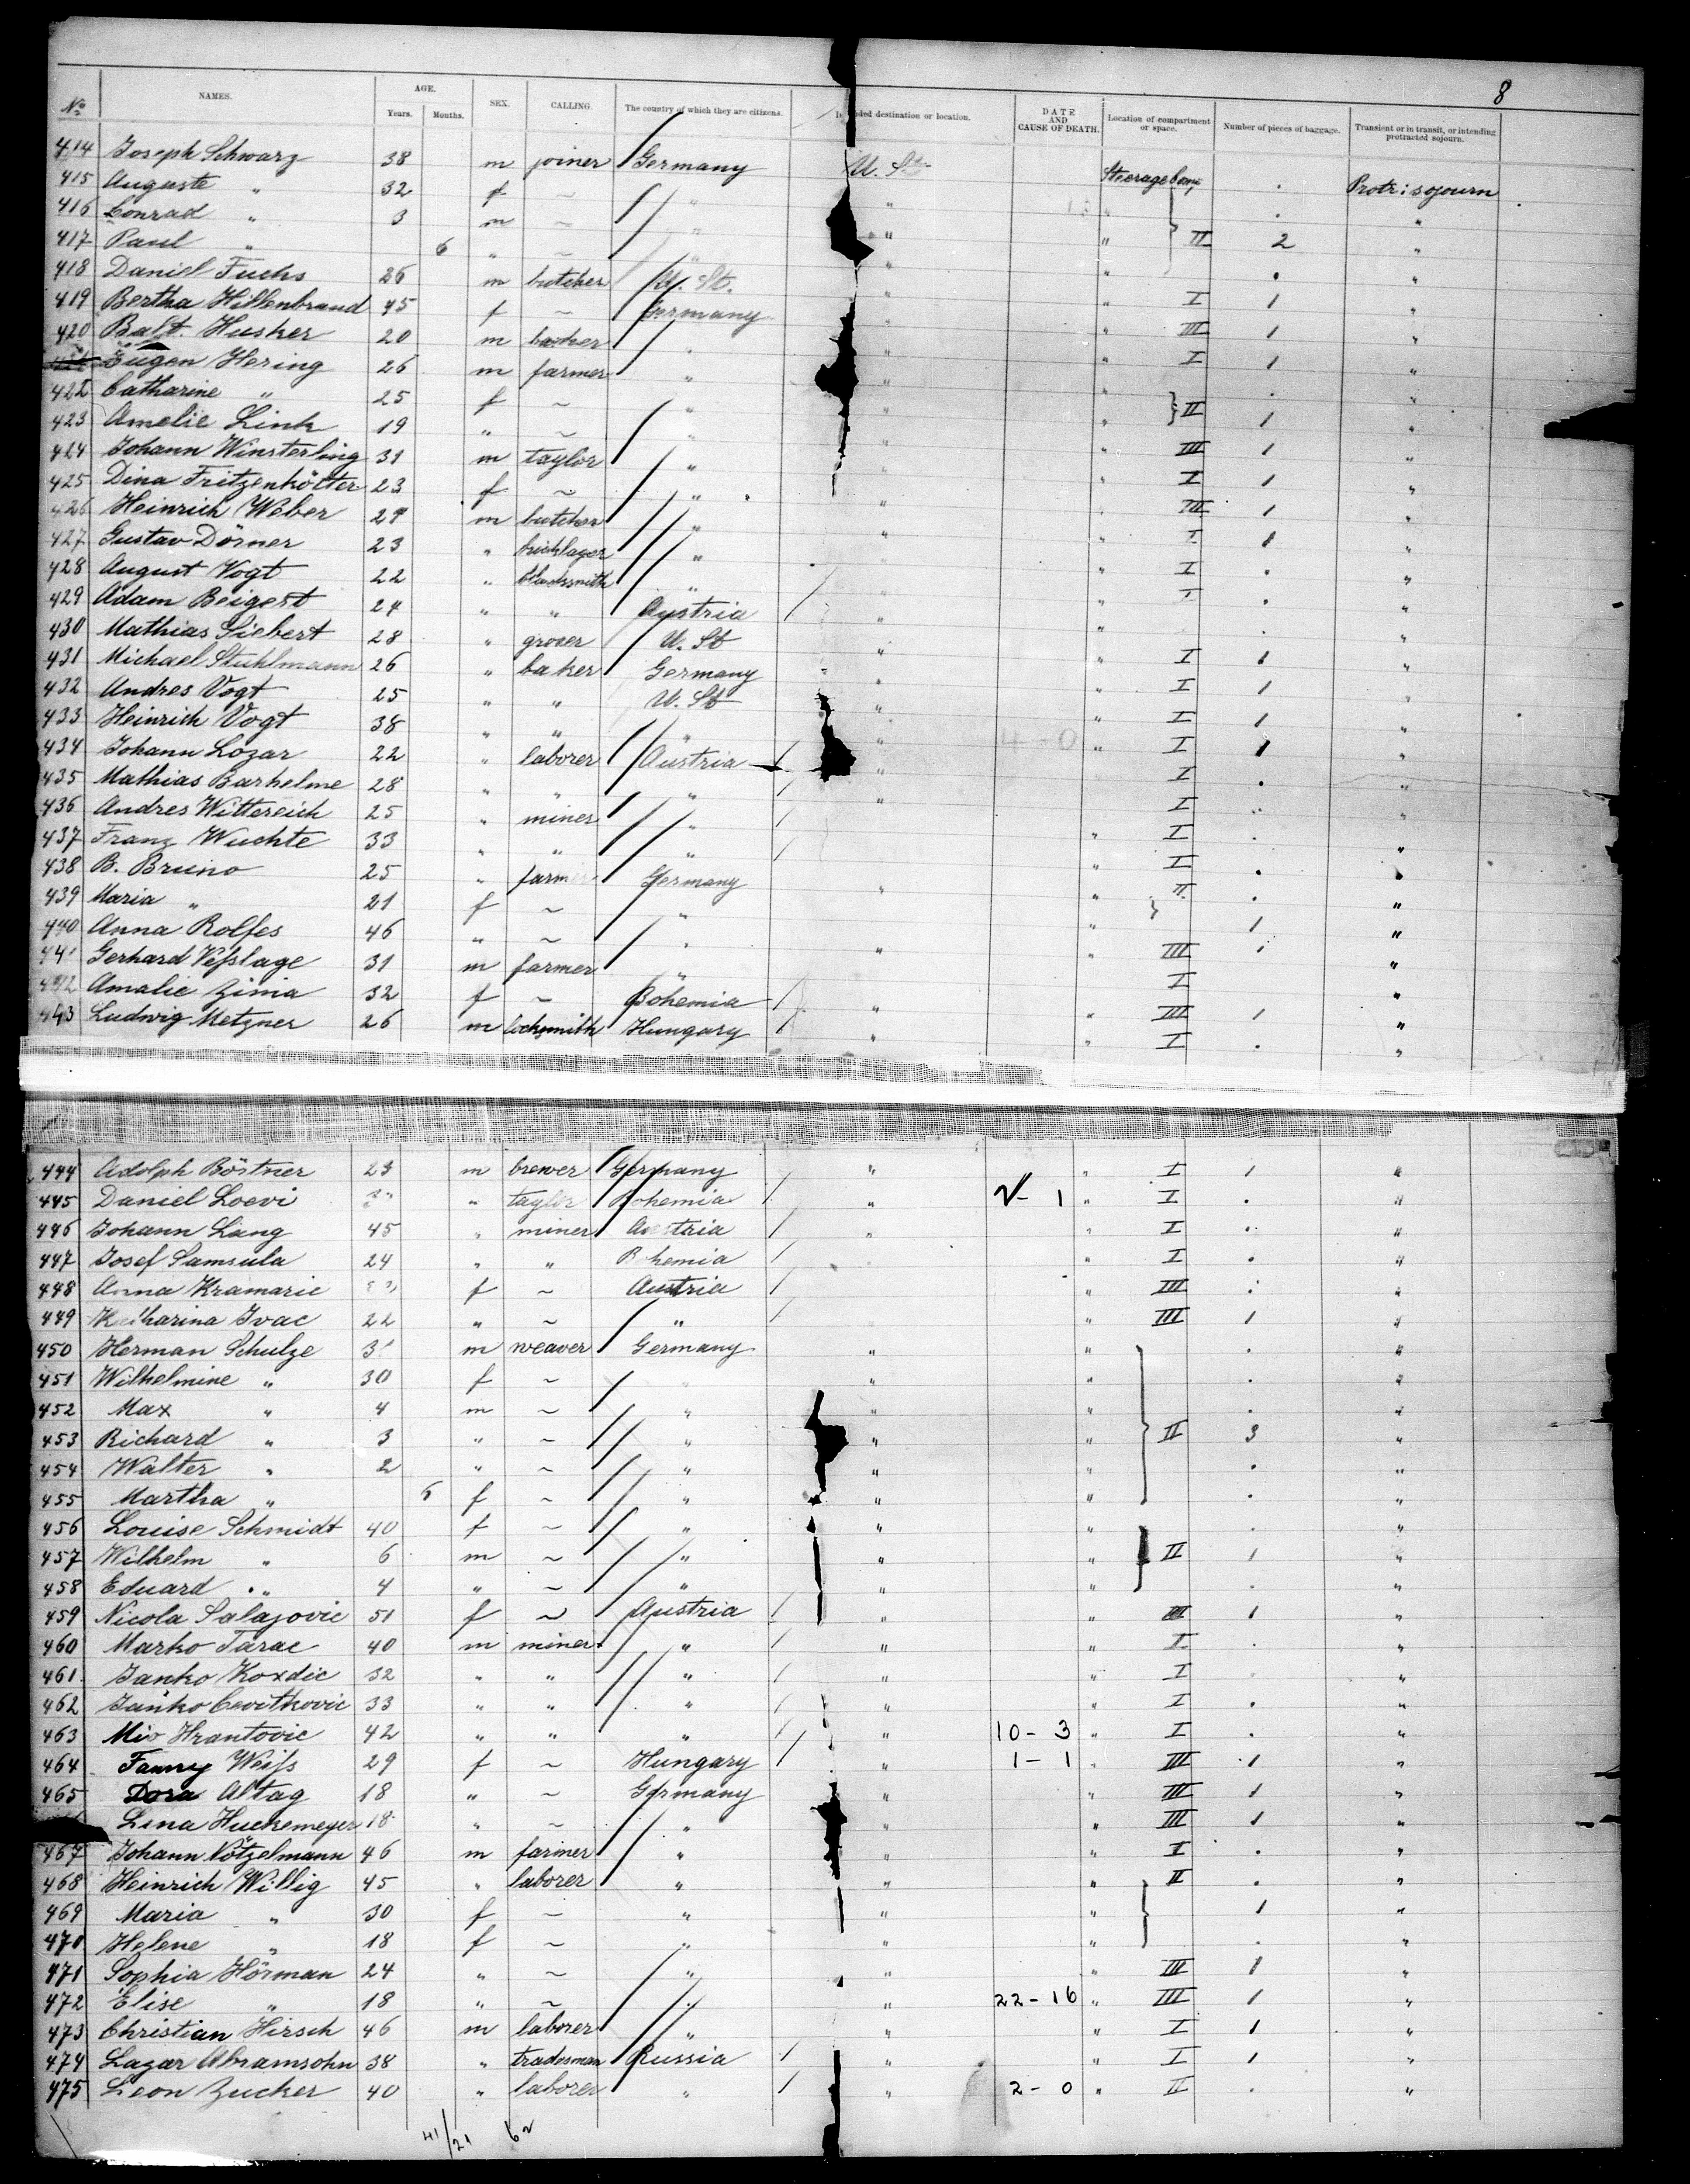 8
No NAMES. AGE. Years. Months. SEX. CALLING. The country of which they are citizens. destination or location. DATE AND CAUSE OF DEATH. Location of compartment or space. Number of pieces of baggage. Transient or in transit, or intending protracted sojourn.
414 Joseph Schwarz 38 m joiner Germany U. St. Steerage Protr: sojourn
415 Auguste " 32 f ~ " " " . "
416 Conrad " 3 m ~ " " " . "
417 Paul " 6 " ~ " " " II 2 "
418 Daniel Fuchs 26 m butcher U. St. " " . "
419 Bertha Hillenbrand 45 f ~ Germany " " I 1 "
420 Balt. Husker 20 m " " " III 1 "
Eugen Hering 26 m farmer " " " I 1 "
422 Catharine " 25 f ~ " " " . "
423 Amelie Link 19 " ~ " " " II 1 "
424 Johann Winsterling 31 m taylor " " " III 1 "
425 Dina Fritzenkötter 23 f ~ " " " I 1 "
426 Heinrich Weber 29 m butcher " " " III 1 "
427 Gustav Dörner 23 " bricklayer " " I 1 "
428 August Vogt 22 " blacksmith " " I . "
429 Adam Beigert 24 " " Austria " " I . "
430 Mathias Siebert 28 " grocer U. St " " . "
431 Michael Stuhlmann 26 " baker Germany " " I 1 "
432 Andres Vogt 25 " " U. St " " I 1 "
433 Heinrich Vogt 38 " " " " " I 1 "
434 Johann Lozar 22 " laborer Austria " 4-0 " I 1 "
435 Mathias Barhelme 28 " " " " I . "
436 Andres Wittereich 25 " miner " I . "
437 Franz Wuchte 33 " " " " I . "
438 B. Bruno 25 " farmer Germany " " I . "
439 Maria " 21 f ~ " " II . "
440 Anna Rolfes 46 " ~ " " " 1 "
441 Gerhard Veßlage 31 m farmer " III 1 "
442 Amalie Zima 32 f ~ Bohemia " I "
443 Ludwig Metzner 26 m locksmith Hungary " " III 1 "
" I . "
444 Adolph Böstner 23 m brewer Germany " " I 1 "
445 Daniel Loevi " taylor Bohemia " 1 " I . "
446 Johann Lang 45 " miner Austria " " I . "
447 Josef Samsula 24 " " Bohemia " I . "
448 Anna Kramaric f ~ Austria " III . "
449 Katharina Ivac 22 " ~ " " III 1 "
450 Herman Schulze m weaver Germany " " . "
451 Wilhelmine " 30 f ~ " " " . "
452 Max " 4 m ~ " " " . "
453 Richard " 3 " ~ " " " II 3 "
454 Walter " 2 " ~ " " " . "
455 Martha " 6 f ~ " " " . "
456 Louise Schmidt 40 f ~ " " " . "
457 Wilhelm " 6 m ~ " " " II 1 "
458 Eduard " 4 " ~ " " " . "
459 Nicola Salajovic 51 f ~ Austria " " III 1 "
460 Marko Tarac 40 m miner " " " I . "
461 Janko Koxdic 32 " " " " " I . "
462 Janko Cevitkovic 33 " " " " " I . "
463 Miv Hrantovic 42 " " " " 10-3 " I . "
464 Fanny Weiß 29 f ~ Hungary " 1-1 " III 1 "
465 Dora Altag 18 " ~ Germany " " III 1 "
Lina Huckemeyer 18 " ~ " " " III 1 "
467 Johann Nötzelmann 46 m farmer " " " I . "
468 Heinrich Willig 45 " laborer " " " II . "
469 Maria " 30 f ~ " " " 1 "
470 Helene " 18 f ~ " " " . "
471 Sophia Hörman 24 " ~ " " " III 1 "
472 Elise " 18 " ~ " " 22-16 " III 1 "
473 Christian Hirsch 46 m laborer " " " I 1 "
474 Lazar Abramsohn 38 " tradesman Russia " " I 1 "
475 Leon Zucker 40 " laborer " " 2-0 " II . "
41/21